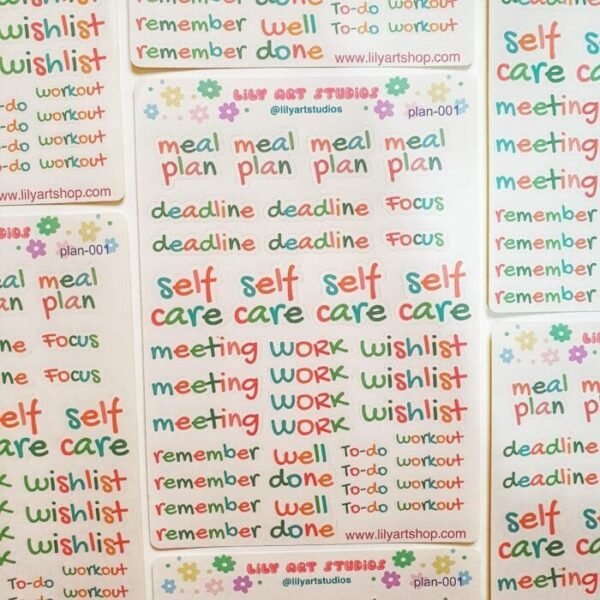 wishlist
wishlist
workout
To-do workout
To-do workout
To-do workout
To-do workout
www.lilyartshop.com
remember well To-do workout
remember done
www.lilyartshop.com
self
care
meeting
meeting
meeting
remember
remember
remember
remember
LILY ART STUDIOS
@lilyartstudios
plan-001
meal meal meal meal
plan plan plan plan
deadline deadline FOCUS
deadline deadline FOCUS
self self self self
care care care care
meeting WORK wishlist
meeting WORK wishlist
meeting WORK wishlist
WORK
remember well To-do workout
remember done To-do workout
remember well To-do workout
remember done To-do workout
www.lilyartshop.com
plan-001
meal
plan
FOCUS
FOCUS
self
care
wishlist
wishlist
wishlist
workout
To-do workout
meal
plan
deadline
deadline
self
care
meeting
LILY ART STUDIOS
@lilyartstudios
plan-001